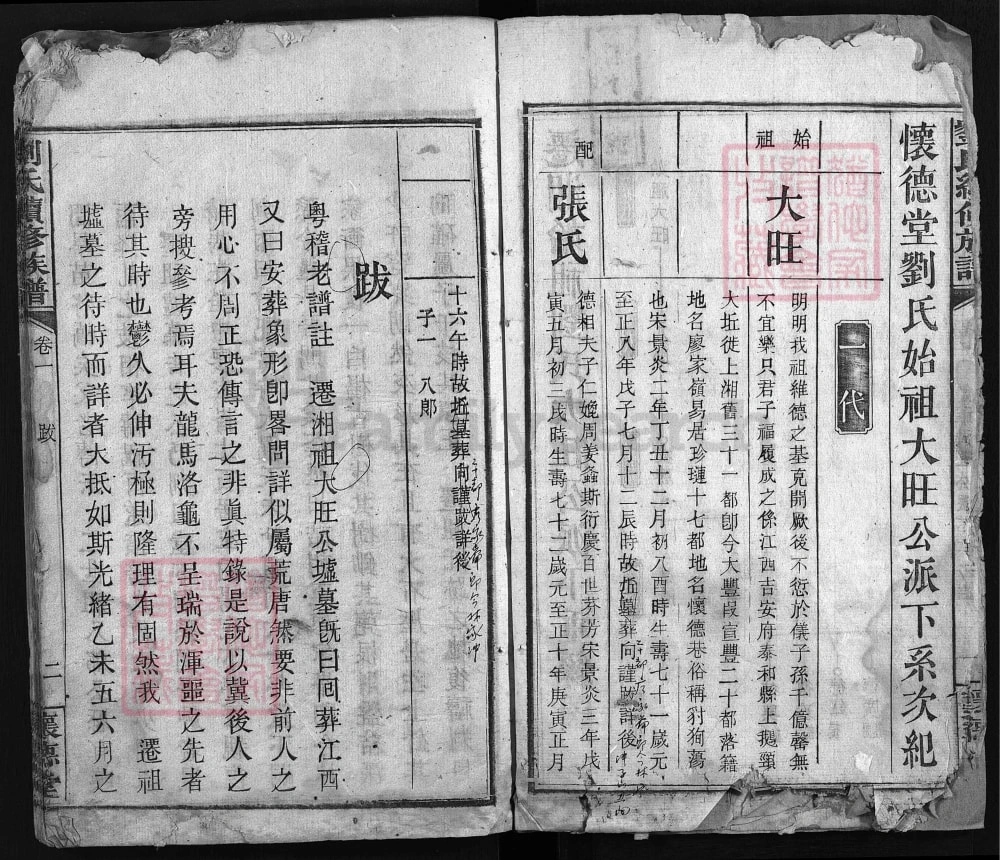 懷德堂劉氏始祖大旺公派下系次紀
一代
始祖
大旺
明明我祖維德之基克開厥後不愆於儀子孫千億馨無
不宜樂只君子福履成之係江西吉安府泰和縣上鵝頸
大坵徙上湘舊三十一都卽今大豐叚宣豐二十都落籍
地名廖家嶺易居珍璉十七都地名懷德巷俗稱豺狗蕩
也宋景炎二年丁丑十二月初八酉時生壽七十一歲元
至正八年戊子七月十二辰時故坵墓葬向謹跋詳後
配
張氏
德相夫子仁媲周姜螽斯衍慶百世芬芳宋景炎三年戊
寅五月初三戌時生壽七十二歲元至正十年庚寅正月
十六午時故坵墓葬向謹跋詳後
子一 八郎
跋
粵稽老譜註 遷湘祖大旺公墟墓旣曰囘葬江西
又曰安葬象形卽畧問詳似屬荒唐然要非前人之
用心不周正恐傳言之非眞特錄是說以冀後人之
旁搜參考焉耳夫龍馬洛龜不呈瑞於渾噩之先者
待其時也鬱久必伸汚極則隆理有固然我 遷祖
墟墓之待時而詳者大抵如斯光緒乙未五六月之
劉氏續修族譜
卷一
跋
二
懷德堂